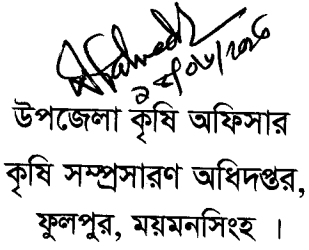 উপজেলা কৃষি অফিসার
কৃষি সম্প্রসারণ অধিদপ্তর,
ফুলপুর, ময়মনসিংহ ।